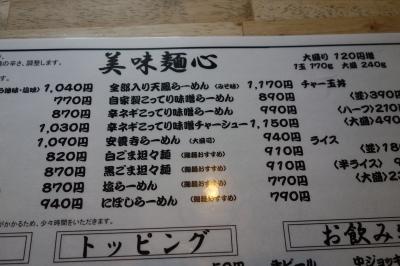 美味麺心
大盛り 120円増
1玉 170g 大盛 240g
の辛さ、調整します。
味噌・塩味) 1,040円 全部入り天鳳らーめん (みそ味) 1,170円 チャー玉丼
770円 自家製こってり味噌らーめん 890円 (並) 390円
870円 辛ネギこってり味噌らーめん 990円 (ハーフ) 210円
1,030円 辛ネギこってり味噌チャーシュー 1,150円 (大盛) 490
1,090円 安養寺らーめん (大盛可) 940円 ライス
820円 白ごま坦々麺 (細麺おすすめ) 910円 (並) 180円
870円 黒ごま坦々麺 (細麺おすすめ) 910円 (半ライス)
870円 塩らーめん (細麺おすすめ) 770円 (大盛) 23
940円 にぼしらーめん (細麺おすすめ) 790円
がかかるため、少々時間をいただきます。
トッピング
お飲み
生ビール 中ジョッキ